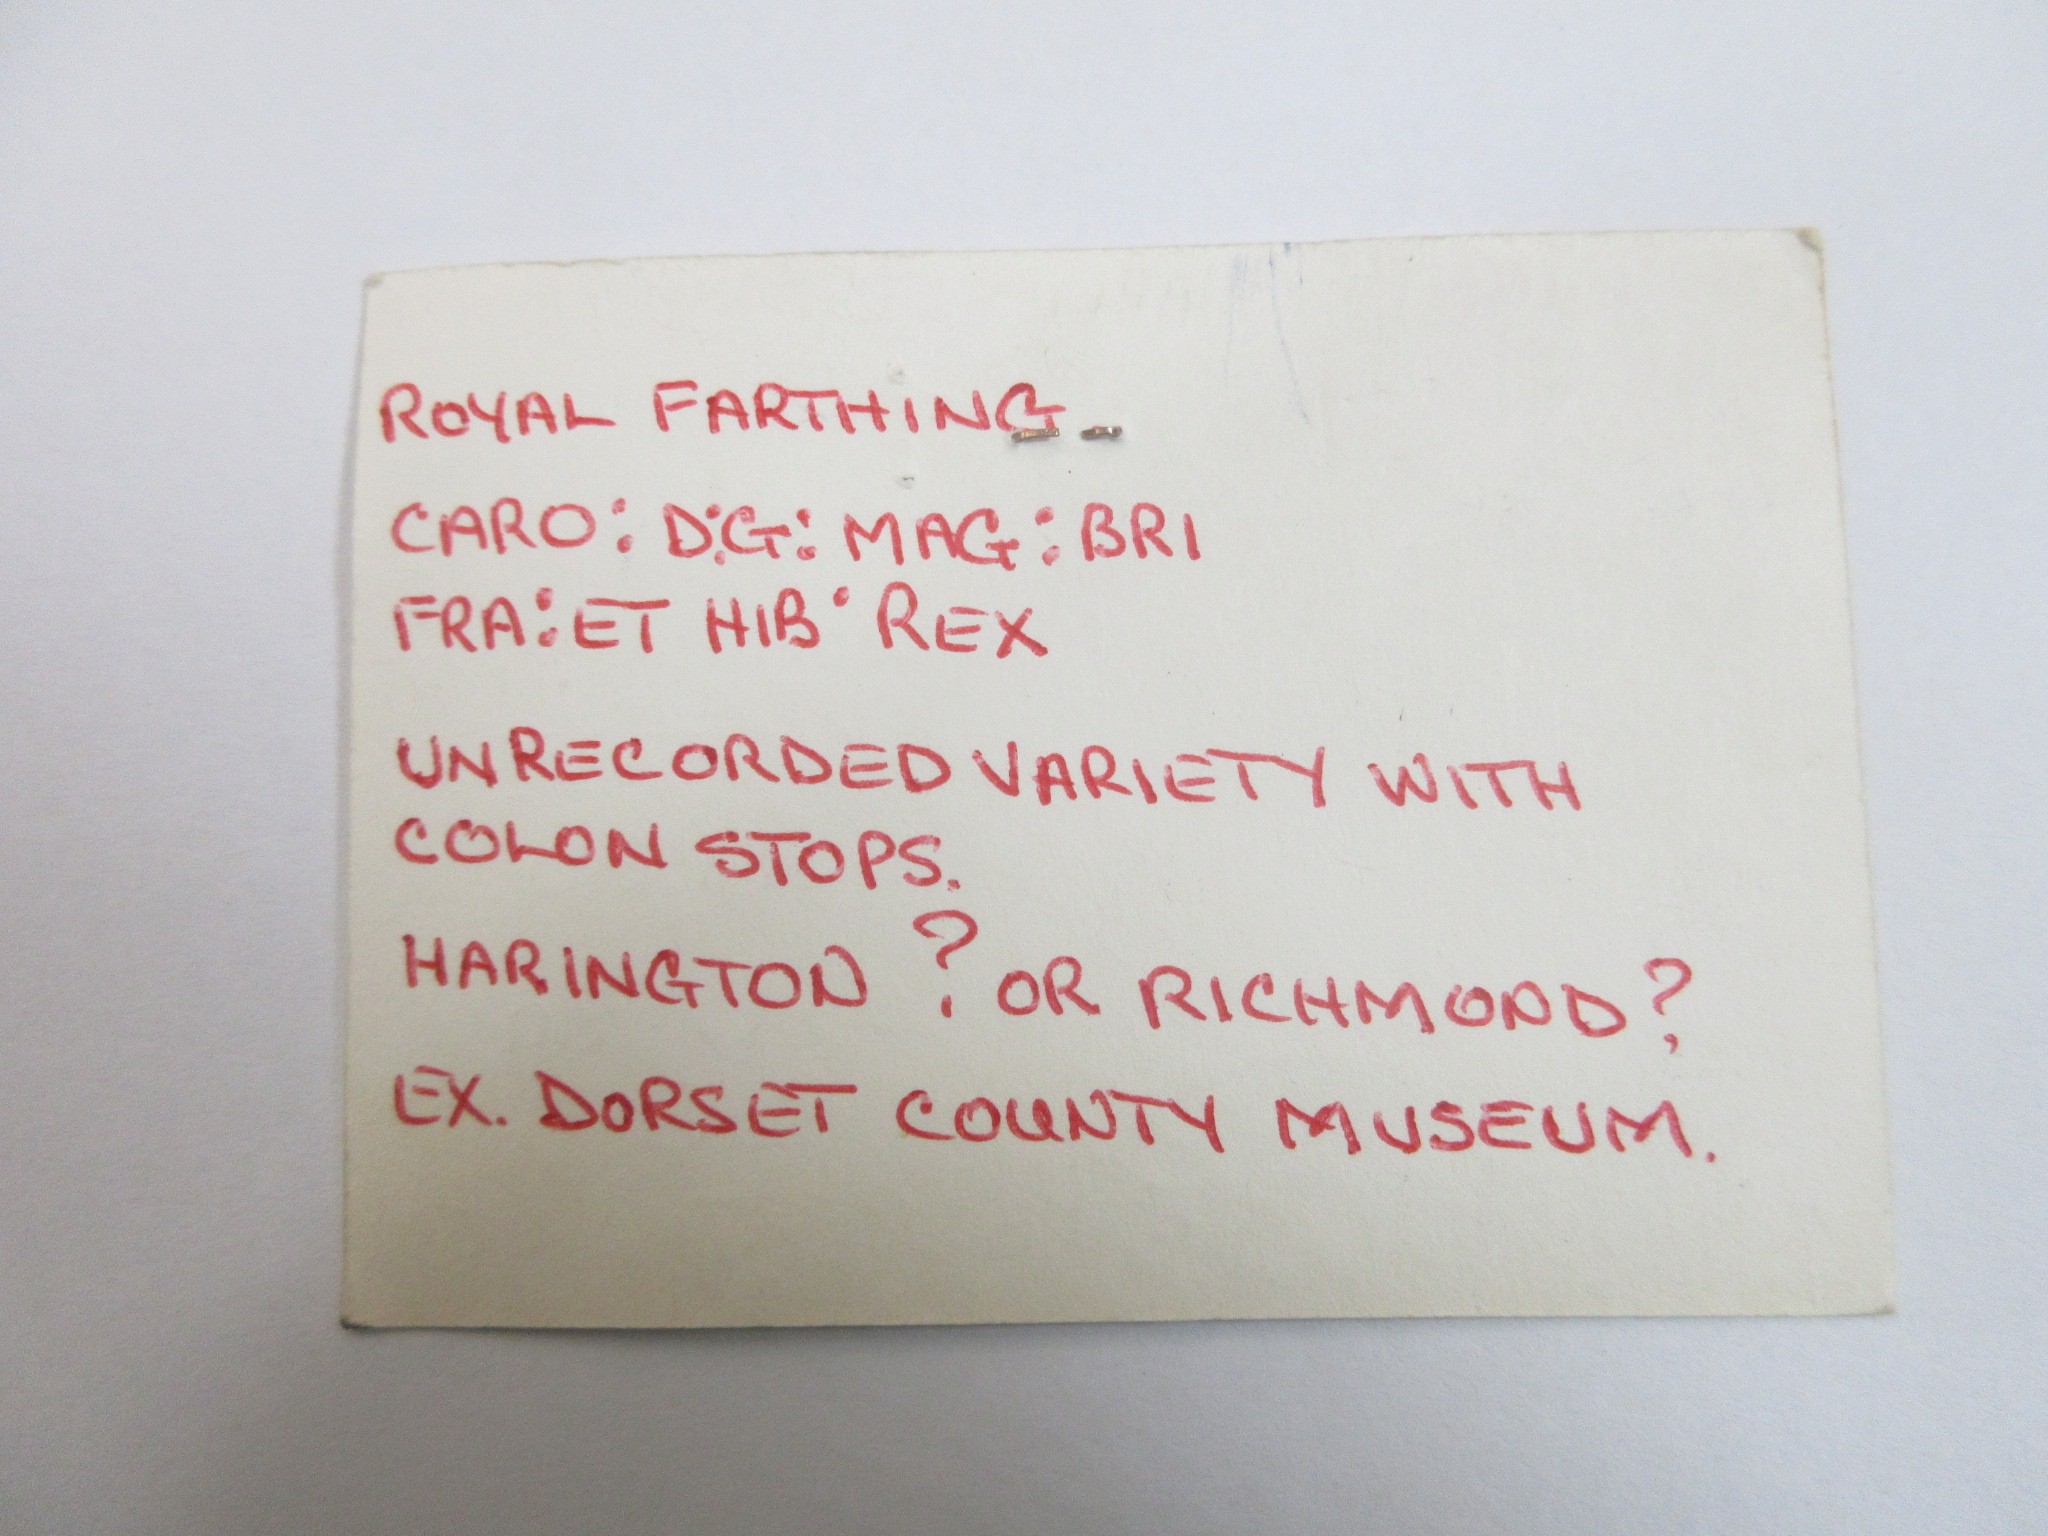 ROYAL FARTHING
CARO: D:G: MAG: BRI
FRA: ET HIB· REX
UNRECORDED VARIETY WITH
COLON STOPS.
HARINGTON ? OR RICHMOND ?
EX. DORSET COUNTY MUSEUM.